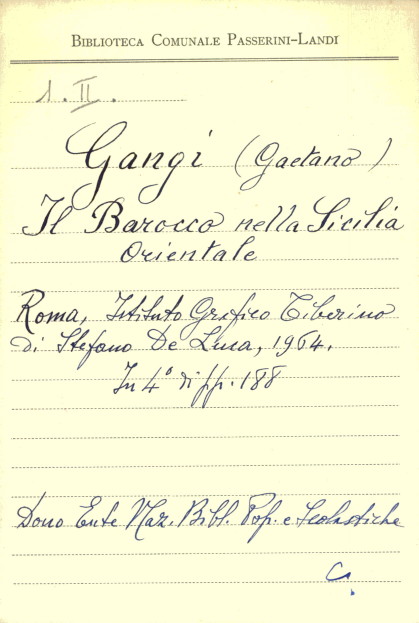 BIBLIOTECA COMUNALE PASSERINI-LANDI
1.II.
Gangi (Gaetano)
Il Barocco nella Sicilia
Orientale
Roma, Istituto Grafico Tiberino
di Stefano De Luca, 1964.
In 4° di pp. 188
Dono Ente Naz. Bibl. Pop. e Scolastiche
C.